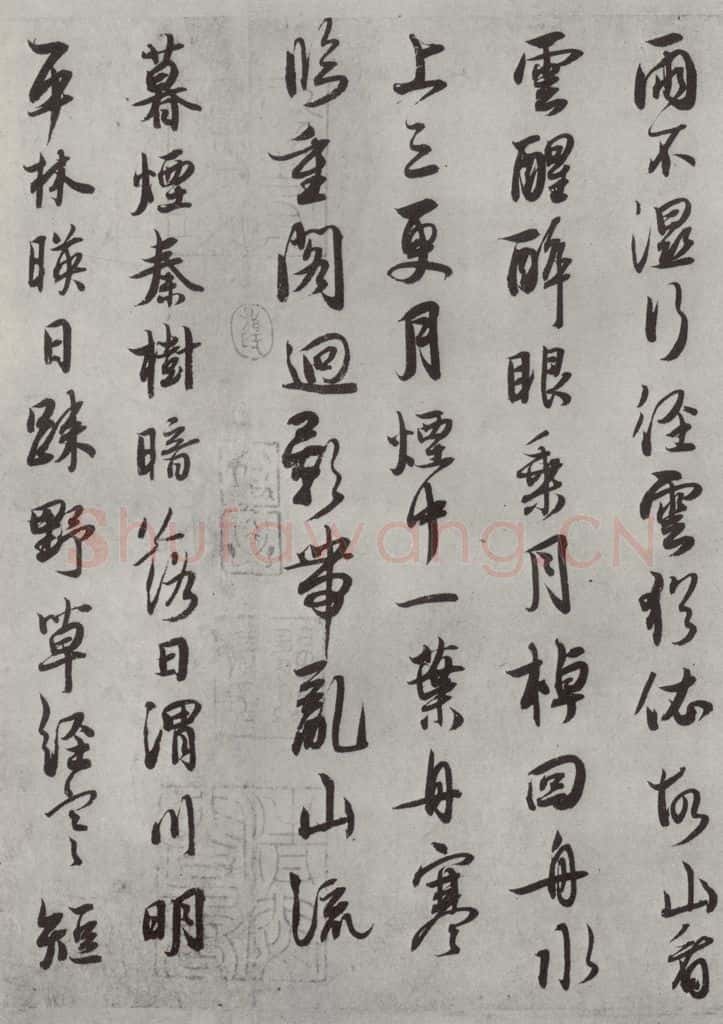 雨不濕行徑雲猶依故山看
雲醒醉眼乘月棹回舟水
上三更月煙中一葉舟寒
吟重閣迥影帶亂山流
暮煙秦樹暗落日渭川明
平林暎日疎野草經寒短
Shufawang.CN